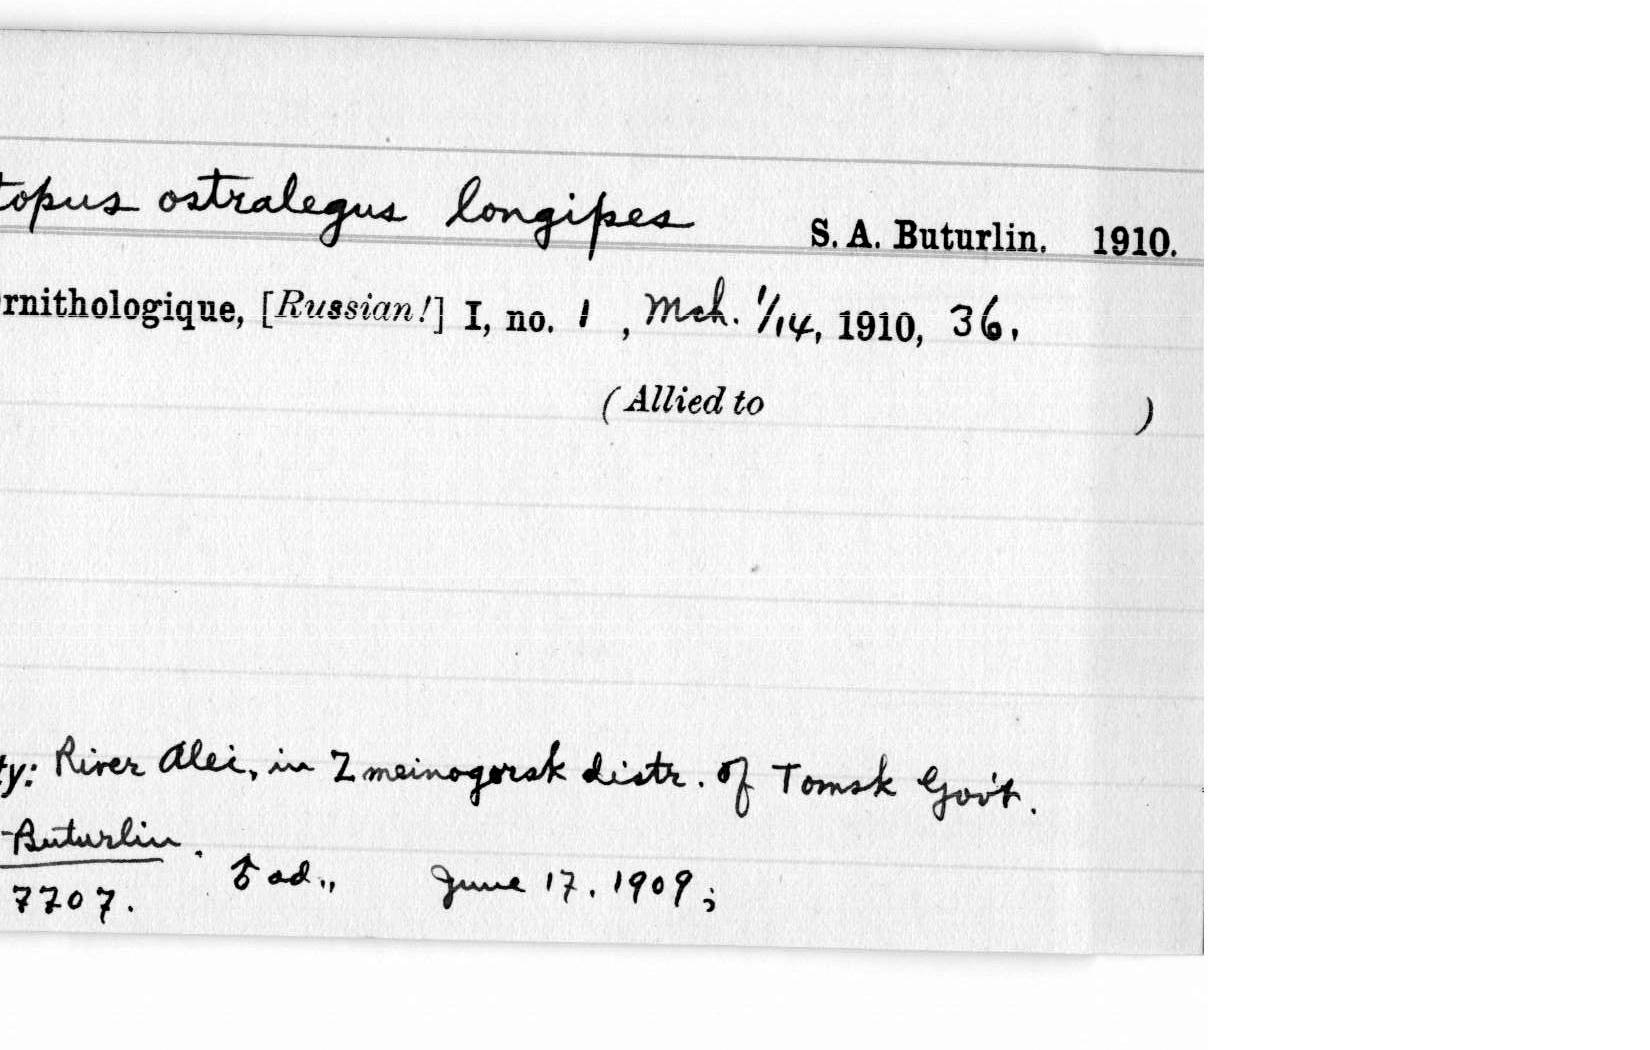 topus ostralegus longipes S. A. Buturlin. 1910.
rnithologique, [Russian!] I, no. 1, Mch. 1/14, 1910, 36.
(Allied to )
ty: River Alei, in Zmeinogorsk distr. of Tomsk Gov't.
Buturlin.
7707. ♂ ad., June 17, 1909;